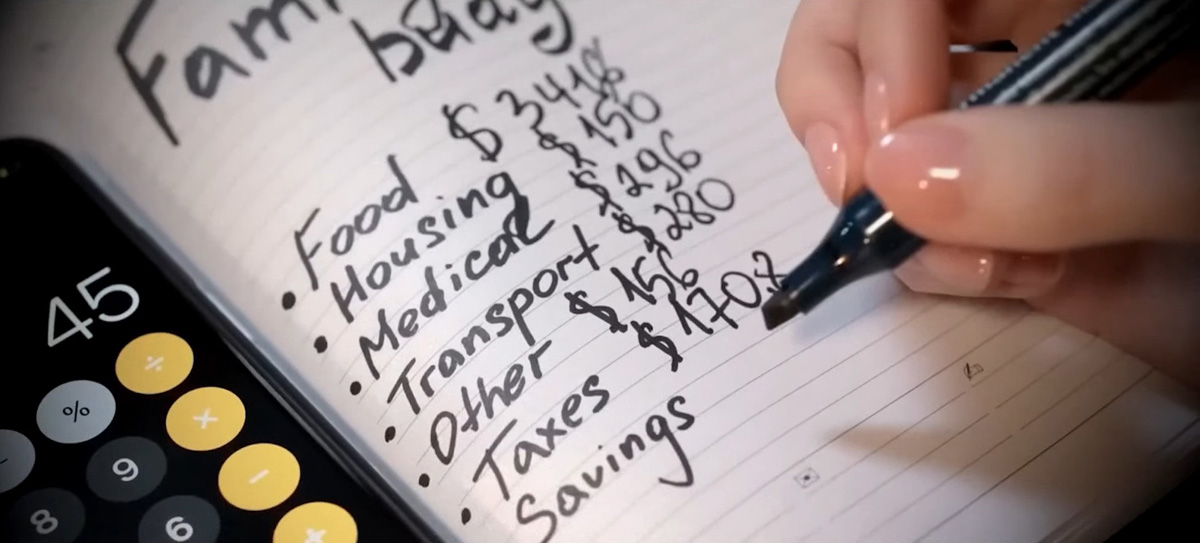 Fam
budg
Food $ 3418
Housing $ 150
Medical $ 296
Transport $ 280
Other $ 156
Taxes $ 1702
Savings
45
÷
%
×
9
−
8
6
+